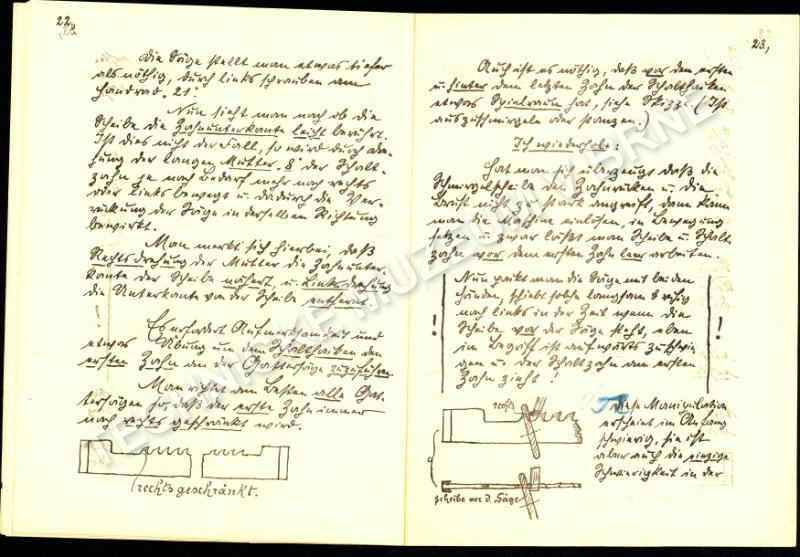 22,
Die Säge stellt man etwas tiefer
als nöthig, durch links schrauben am
Handrad „21“.
Nun sieht man nach ob die
Scheibe die Zahnunterkante leicht berührt.
Ist dies nicht der Fall, so wird durch dre-
hung der langen Mutter „8“ der Schalt-
zahn je nach Bedarf mehr nach rechts
oder links bewegt u. dadurch die Ver-
rückung der Säge in derselben Richtung
bewirkt.
Man merkt sich hierbei, daß
Rechtsdrehung der Mutter die Zahnunter-
kante der Scheibe nähert, u. Linksdrehung
die Unterkante von der Scheibe entfernt.
Es erfordert Aufmerksamkeit und
etwas Übung um dem Schalthaiken den
ersten Zahn an der Gattersäge zuzuführen.
Man richtet am Besten alle Gat-
tersägen so, daß der erste Zahn immer
nach rechts geschränkt wird.
rechts geschränkt.
23,
Auch ist es nöthig, daß vor dem ersten
u. hinter dem letzten Zahn der Schalthaiken
etwas Spielraum hat, siehe Skizze. (Ist
auszuschmirgeln oder stanzen.)
Ich wiederhole:
Hat man sich überzeugt daß die
Schmirgelscheibe den Zahnrücken u. die
Brust nicht zu stark angreift, dann kann
man die Maschine einlösen, in Bewegung
setzen u. zwar läßt man Scheibe u. Schalt-
zahn vor dem ersten Zahn leer arbeiten.
Nun packt man die Säge mit beiden
Händen, schiebt solche langsam & ruhig
nach links in der Zeit wenn die
! Scheibe vor der Säge steht, eben !
im Begriff ist aufwärts zu
den u. der Schaltzahn am ersten
Zahn zieht!
rechts
Diese Manipulation
erscheint im Anfang
schwierig, sie ist
aber auch die einzige
Schwierigkeit in der
Scheibe vor d. Säge
TECHNICKÉ MUZEUM V BRNĚ